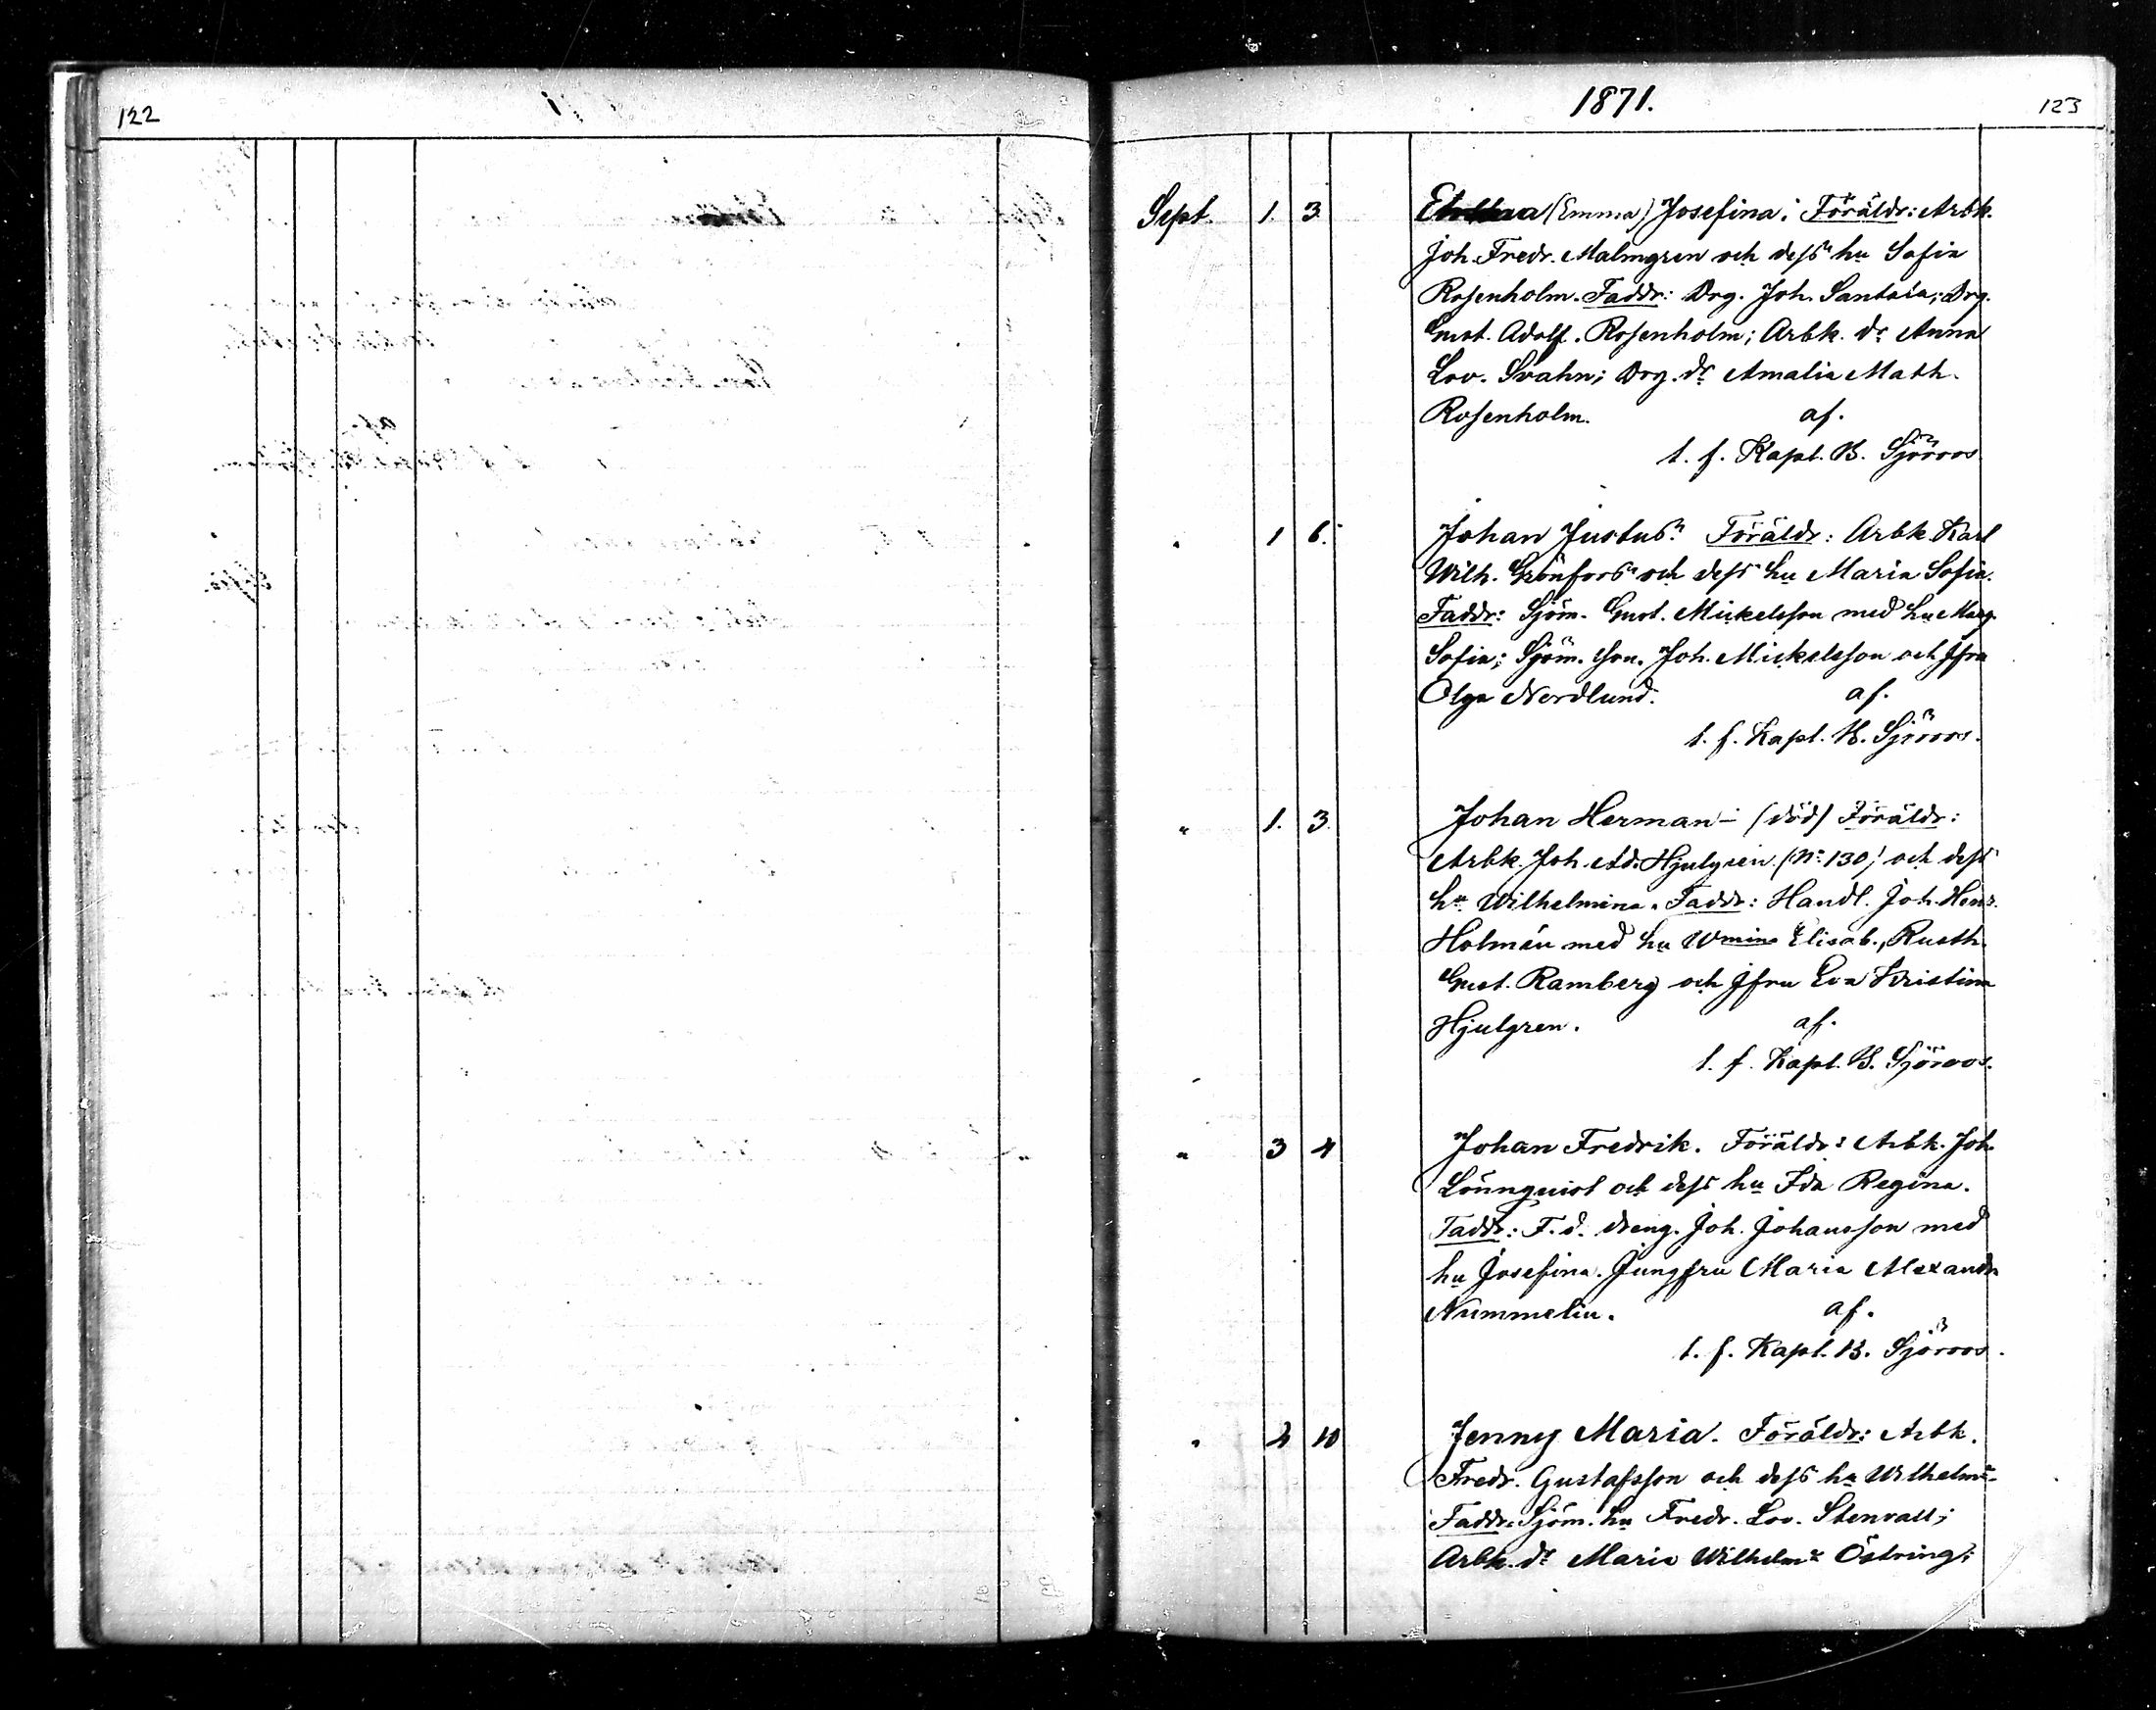 122
1871.
123
Sept. 1. 3. (Emma) Josefina. Föräldr: Arbk.
Joh. Fredr. Malmgren och dess hu Sofia
Rosenholm. Faddr: Drg. Joh. Santala; Drg.
Gust. Adolf. Rosenholm; Arbk. dr Anna
Lov. Svahn; Drg. dr Amalia Math.
Rosenholm. af.
t. f. Kapl. B. Sjöroos.
" 1 6. Johan Justus. Föräldr: Arbk. Karl
Wilh. Grönfors och dess hu Maria Sofia.
Faddr: Sjöm. Gust. Mickelsson med hu Marg.
Sofia; Sjöm. son. Joh. Mickelsson och Jfru
Olga Nordlund. af.
t. f. Kapl. B. Sjöroos.
" 1. 3. Johan Herman – (död) Föräldr:
Arbk. Joh. Ad. Hjulgren (No 130) och dess
hu Wilhelmina. Faddr: Handl. Joh. Henr.
Holmén med hu Wmina Elisab., Rusth.
Gust. Ramberg och Jfru Eva Kristina
Hjulgren. af.
t. f. Kapl. B. Sjöroos.
" 3 4 Johan Fredrik. Föräldr: Arbk. Joh.
Lönnquist och dess hu Ida Regina.
Faddr: F. d. dreng. Joh. Johansson med
hu Josefina. Jungfru Maria Alexandra
Nummelin. af.
t. f. Kapl. B. Sjöroos.
" 2 10 Jenny Maria. Föräldr: Arbk.
Fredr. Gustafsson och dess hu Wilhelma.
Faddr: Sjöm. hu Fredr. Lov. Stenvall;
Arbk. dr Maria Wilhelma Östring;